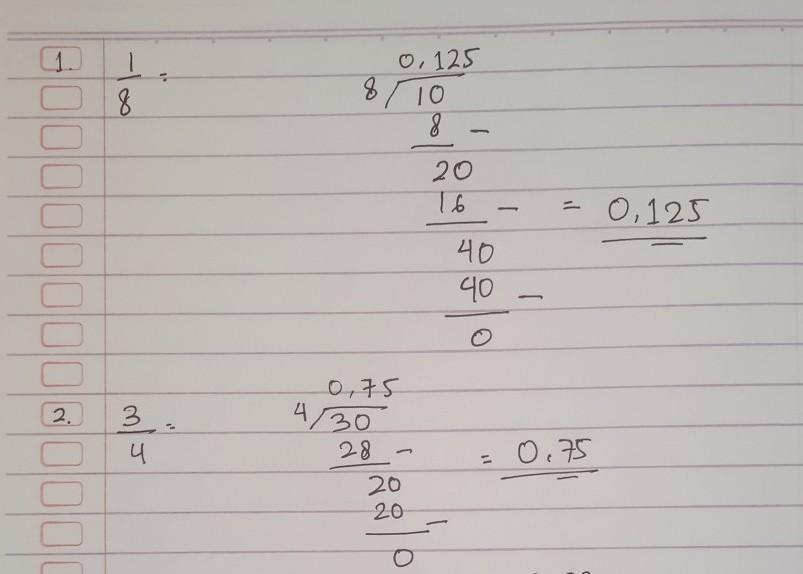 0,125
1. 1/8 = 8/10
8 -
20
16 - = 0,125
40
40 -
0
0,75
2. 3/4 = 4/30
28 - = 0.75
20
20 -
0